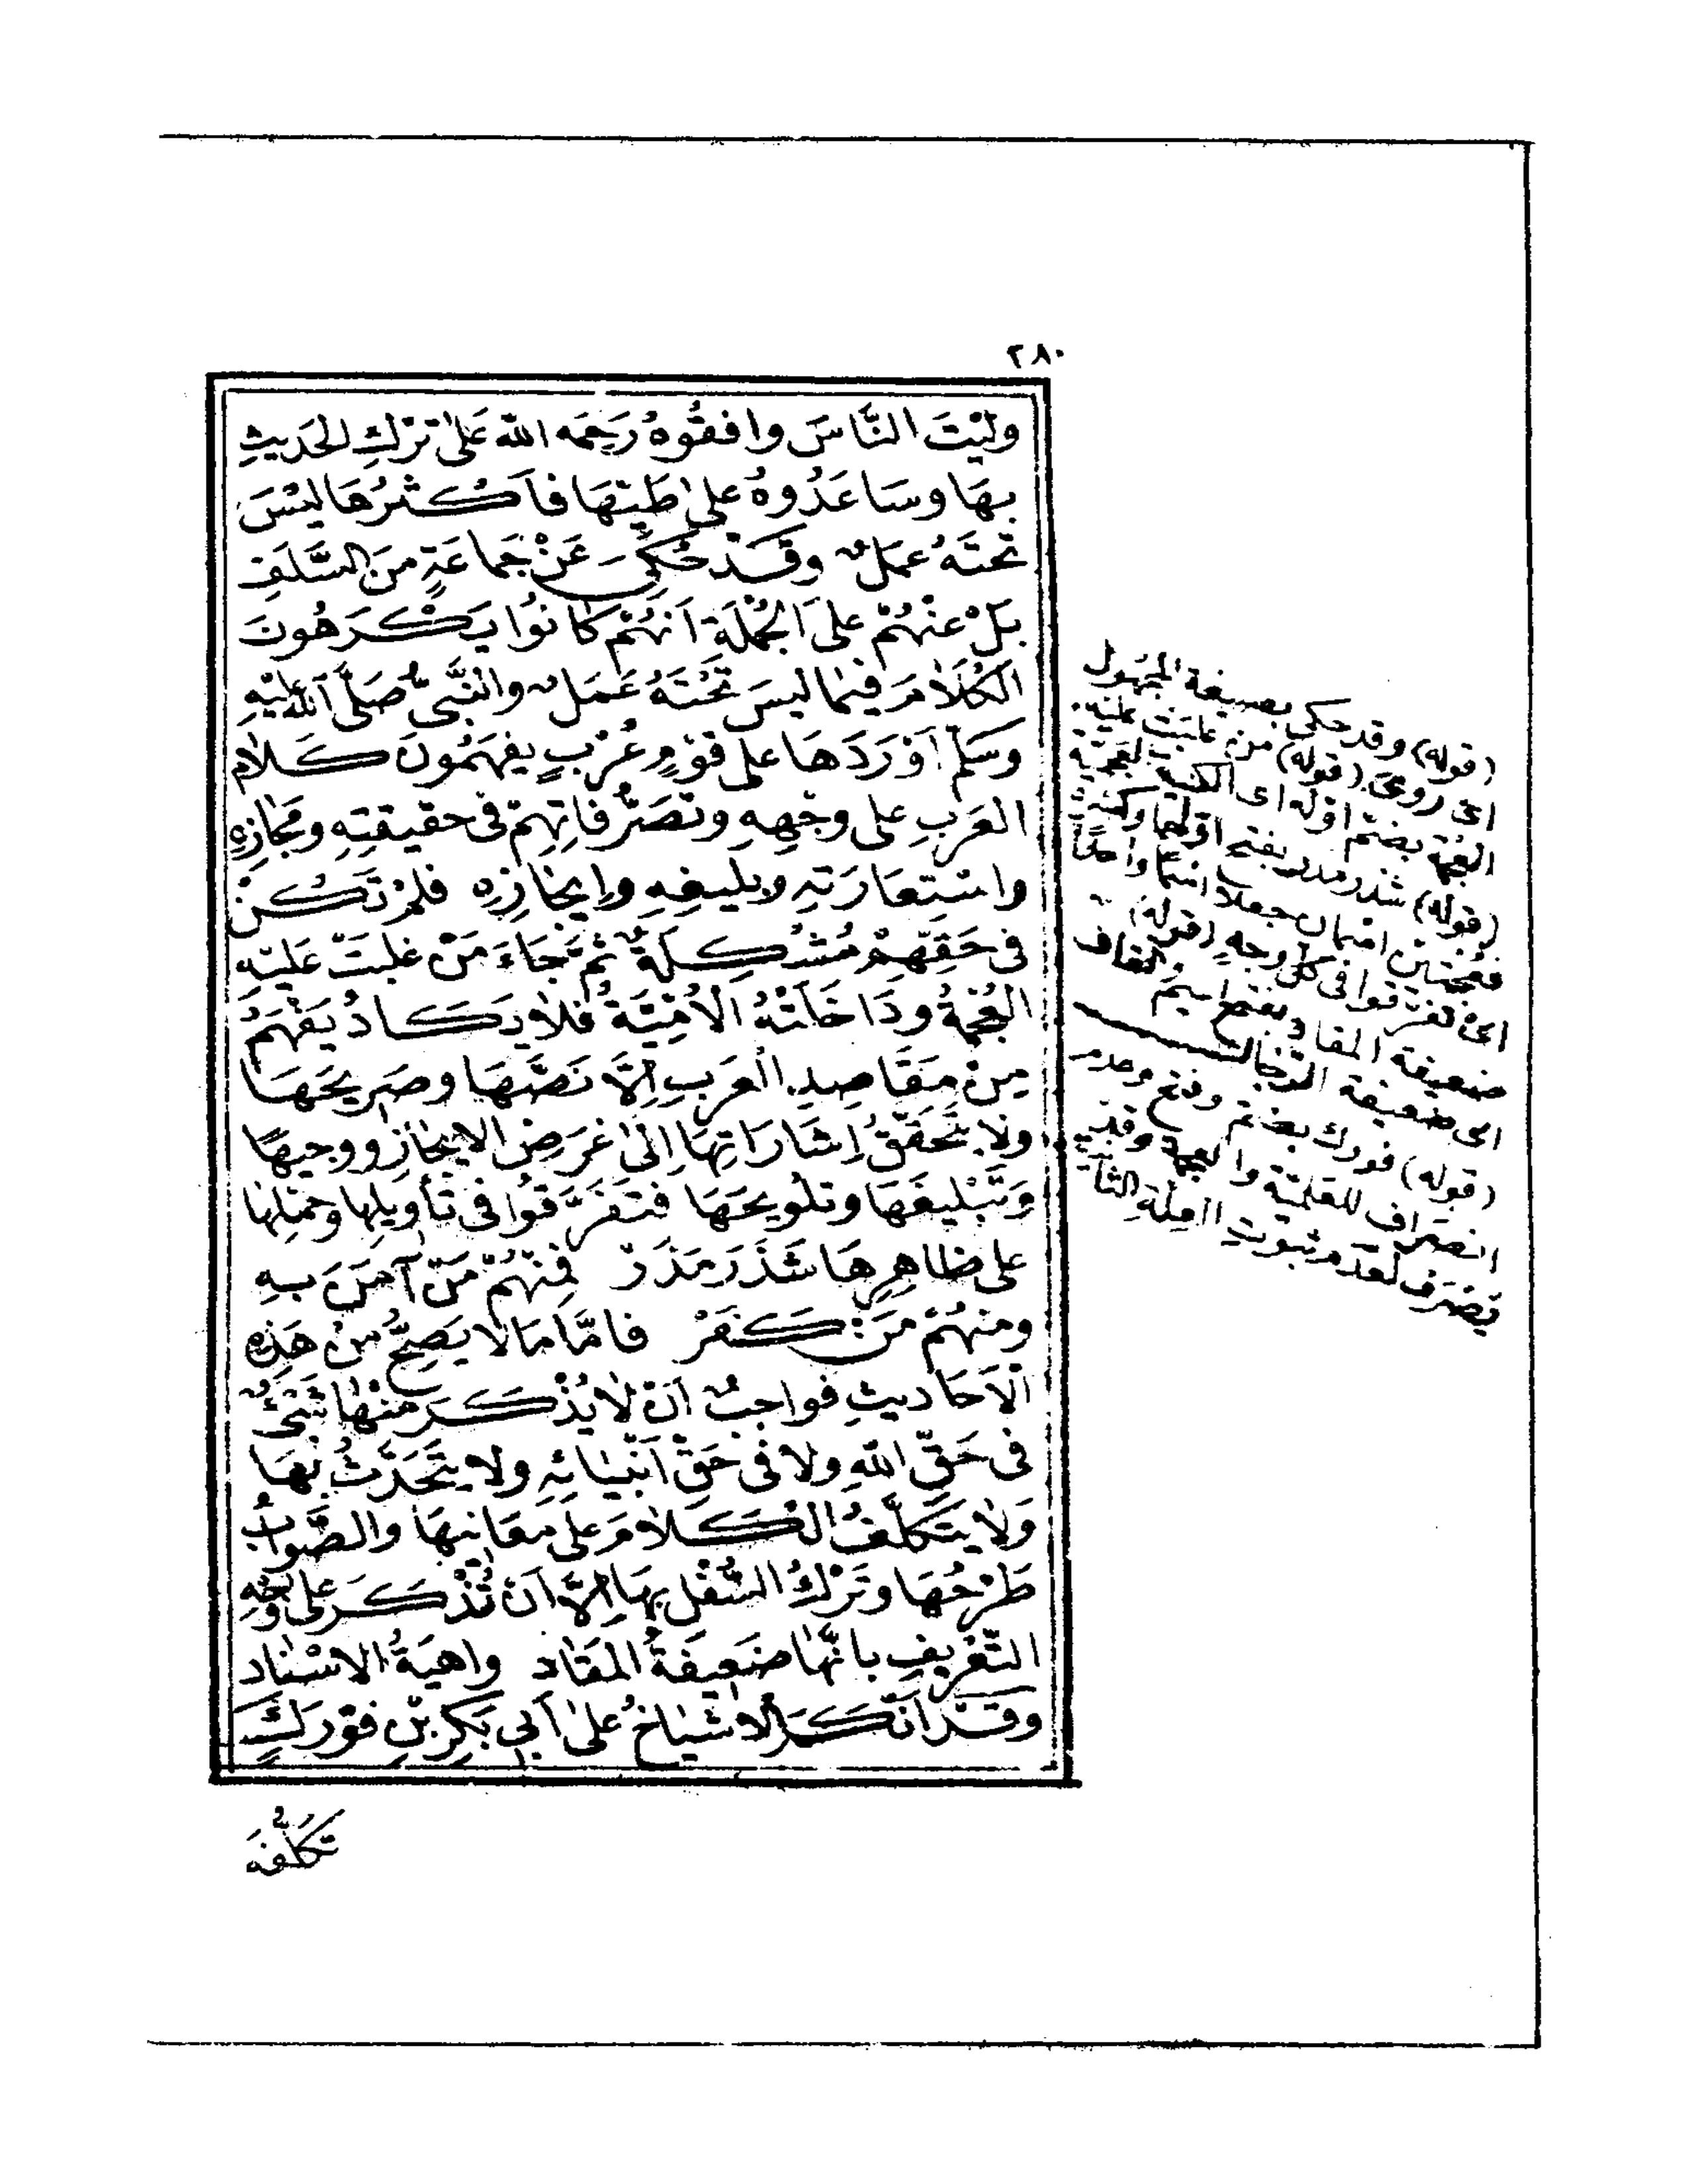 ٢٨٠
وليْتَ النَّاسَ وافقُوهُ رَحِمَه الله عَلىٰ تَرْكِ الحَدِيثِ
بِهَا وسَاعَدُوهُ على طَيِّهَا فأكْثرُهَا ليْسَ
تحتَهُ عمَلٌ وقَدْ حُكِىَ عَنْ جَماعَةٍ مِنَ السَّلَفِ
بَلْ عنْهُمْ على الجُمْلَةِ أنهُمْ كانوُا يَكْرَهُونَ
الكَلَامَ فيمَا ليسَ تَحْتَهُ عَمَلٌ والنَّبىُّ صَلَّى اللهُ عليْهِ
وسَلم أوْرَدَهَا على قوْمٍ عُرْبٍ يفهَمُونَ كَلَامَ
العَرَبِ على وجْهِهِ وتصَرُّفاتِهِمْ فى حقيقتِهِ ومَجازِهِ
واسْتعَارَتِهِ وبليغِهِ وإيجَازِهِ فلمْ تَكُنْ
فى حَقِّهِمْ مُشْكِلَةً ثمَّ جَاءَ مَنْ غلبَتْ عَليْهِ
العُجْمَةُ ودَاخَلَتْهُ الأُمِّيَّةُ فلَا يَكَادُ يَفْهَمُ
مِنْ مَقَاصِدِ العَرَبِ إلَّا نَصَّهَا وصَرِيحَهَا
ولَا يَتَحَقَّقُ إشَارَاتِهَا إلىٰ غَرَضِ الايجَازِ ووحِيهَا
وَتَبْلِيغَهَا وتلوِيحَهَا فتَفَرَّقُوا فى تأويلِها وحَمْلِها
على ظاهِرِهَا شَذَرَ مَذَرَ فمِنْهُمْ مَنْ آمَنَ بِهِ
ومنهُمْ مَنْ كَفَرْ فامَّا مَا لا يَصِحُّ مِنْ هَذِهِ
الْأحَادِيثِ فواجبٌ أنْ لا يُذْكَرَ منْهَا شَيْءٌ
فى حَقِّ اللهِ ولا فى حَقِّ أنْبيَائِهِ ولا يُتَحَدَّثُ بِهَا
وَلا يُتَكَلَّفُ الْكَلَامَ على معَانِيهَا والصَّوَابُ
طَرْحُهَا وتَرْكُ الشُّغْلِ بِهَا إلَّا أنْ تُذْكَرَ على وجْهِ
التَّعْرِيفِ بانَّهَا ضَعِيفَةُ المَقَادِ واهيَةُ الاسْنَادِ
وقَدْ أنْكَرَ الاشْيَاخُ علىٰ أبِي بَكرِ بْنِ فوْرَكٍ
تَكَلُّفَهُ
(قوله) وقد حكى بصيغة المجهول
اى روى (قوله) من غلبت عليه
العجمة بضم اوله اى الكنية لعجمية
(قوله) شذر مذر بفتح اولهما وكسر
فمعجمتين اسمان جعلا اسما واحدا
اى تفرقوا فى كل وجه (قوله)
ضعيفة المقاد بفتح ميم المقاف
اى ضعيفة الرجال
(قوله) فورك بضم وفتح وعدم
انصراف للعلمية والعجمة وقد
يصرف لعدم ثبوت العلة الثا